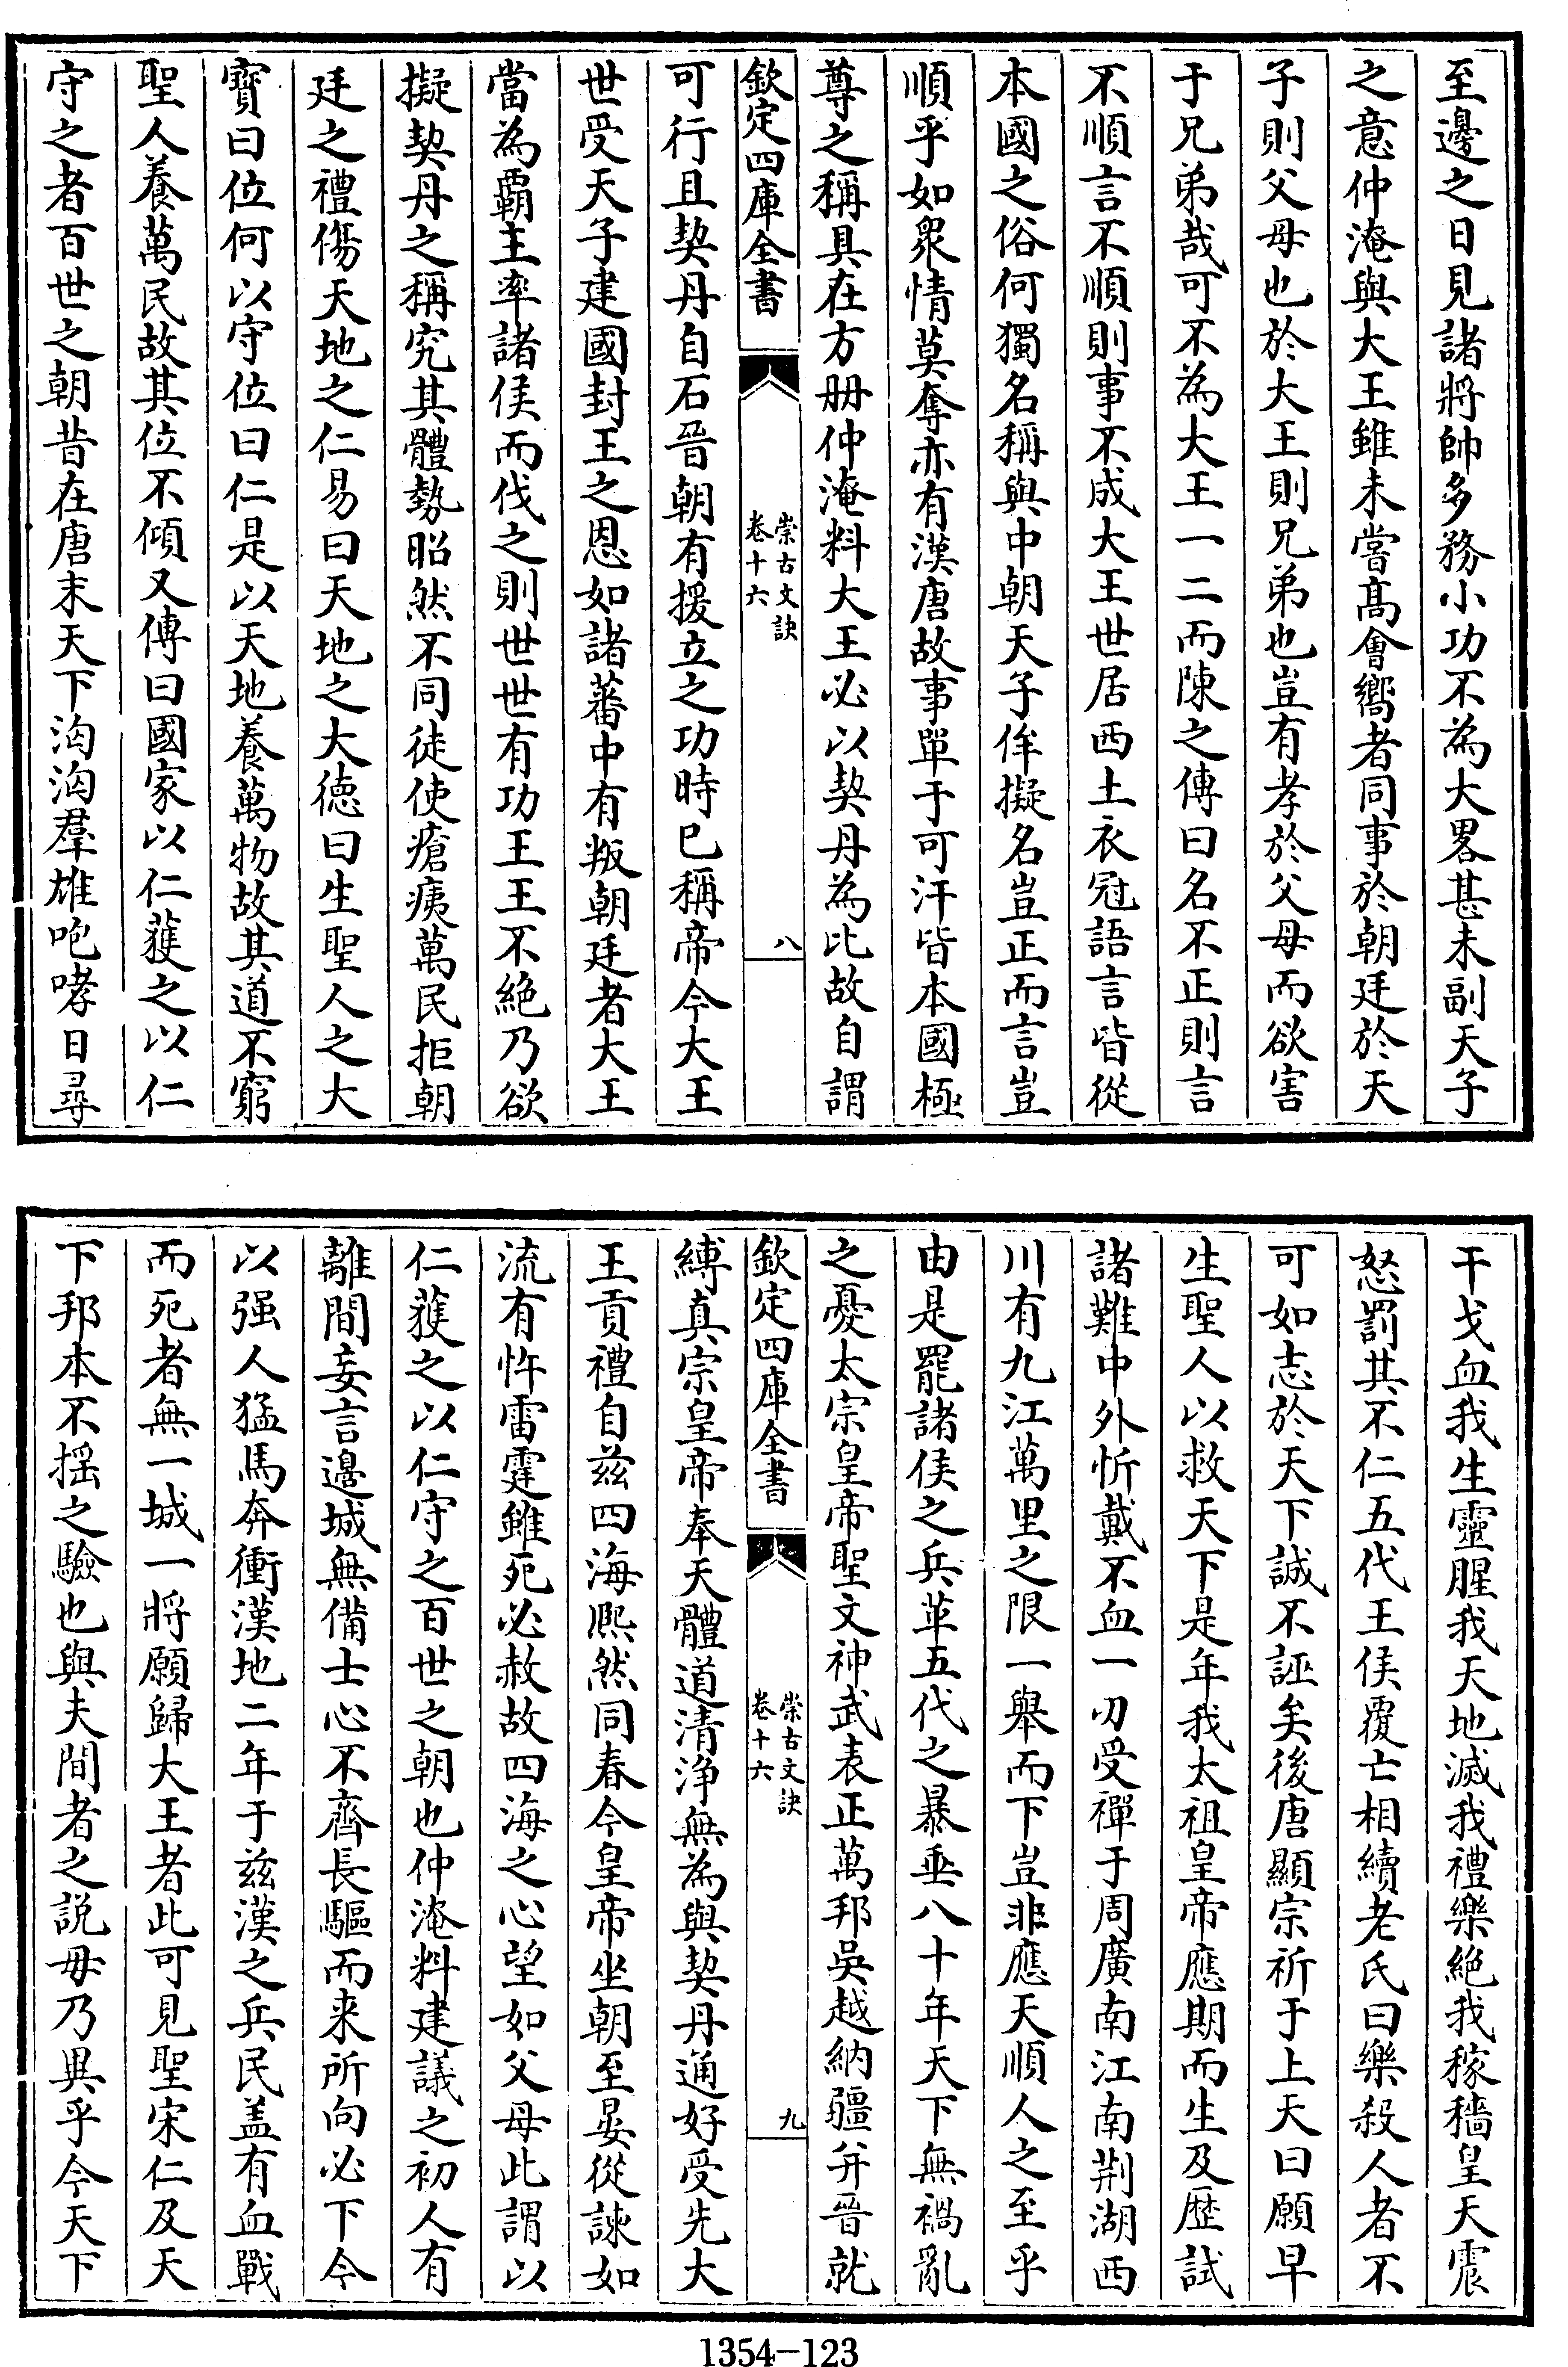 至邊之日見諸將帥多務小功不為大畧甚未副天子
之意仲淹與大王雖未嘗髙會嚮者同事於朝廷於天
子則父母也於大王則兄弟也豈有孝於父母而欲害
于兄弟哉可不為大王一二而陳之傳曰名不正則言
不順言不順則事不成大王世居西土衣冠語言皆從
本國之俗何獨名稱與中朝天子侔擬名豈正而言豈
順乎如衆情莫奪亦有漢唐故事單于可汗皆本國極
尊之稱具在方册仲淹料大王必以契丹為比故自謂
欽定四庫全書
崇古文訣
卷十六
八
可行且契丹自石晉朝有援立之功時已稱帝今大王
世受天子建國封王之恩如諸蕃中有叛朝廷者大王
當為覇主率諸侯而伐之則世世有功王王不絶乃欲
擬契丹之稱究其體勢昭然不同徒使瘡痍萬民拒朝
廷之禮傷天地之仁易曰天地之大徳曰生聖人之大
寳曰位何以守位曰仁是以天地養萬物故其道不窮
聖人養萬民故其位不傾又傳曰國家以仁獲之以仁
守之者百世之朝昔在唐末天下洶洶羣雄咆哮日尋
干戈血我生靈腥我天地滅我禮樂絶我稼穡皇天震
怒罰其不仁五代王侯覆亡相續老氏曰樂殺人者不
可如志於天下誠不誣矣後唐顯宗祈于上天曰願早
生聖人以救天下是年我太祖皇帝應期而生及歴試
諸難中外忻戴不血一刃受禪于周廣南江南荆湖西
川有九江萬里之限一舉而下豈非應天順人之至乎
由是罷諸侯之兵革五代之暴垂八十年天下無禍亂
之憂太宗皇帝聖文神武表正萬邦吳越納疆并晉就
欽定四庫全書
崇古文訣
卷十六
九
縛真宗皇帝奉天體道清浄無為與契丹通好受先大
王貢禮自兹四海熙然同春今皇帝坐朝至晏從諫如
流有忤雷霆雖死必赦故四海之心望如父母此謂以
仁獲之以仁守之百世之朝也仲淹料建議之初人有
離間妄言邉城無備士心不齊長驅而来所向必下今
以强人猛馬奔衝漢地二年于兹漢之兵民盖有血戰
而死者無一城一將願歸大王者此可見聖宋仁及天
下邦本不揺之驗也與夫間者之説毋乃異乎今天下
1354-123